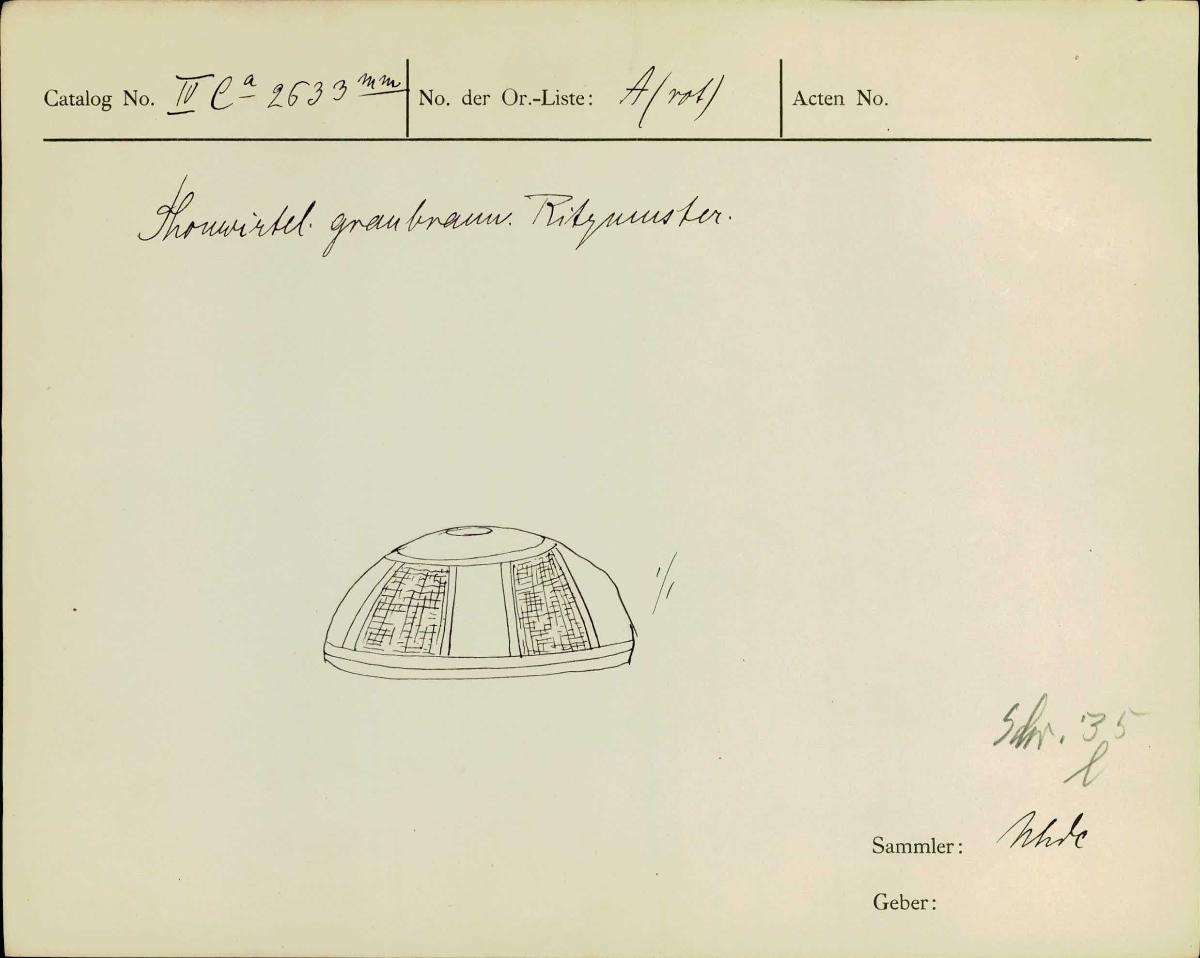 Catalog No. IV Ca 2633 mm No. der Or.-Liste: A (rot) Acten No.
Thonwirtel. graubraun. Ritzmuster.
1/1
Schr. '35
l
Sammler: Uhde
Geber: